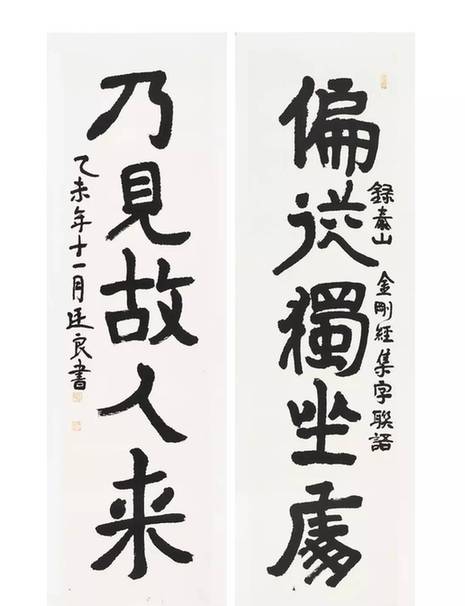 偏從獨坐處
録泰山 金剛經集字聯語
乃見故人来
乙未年十一月廷良書